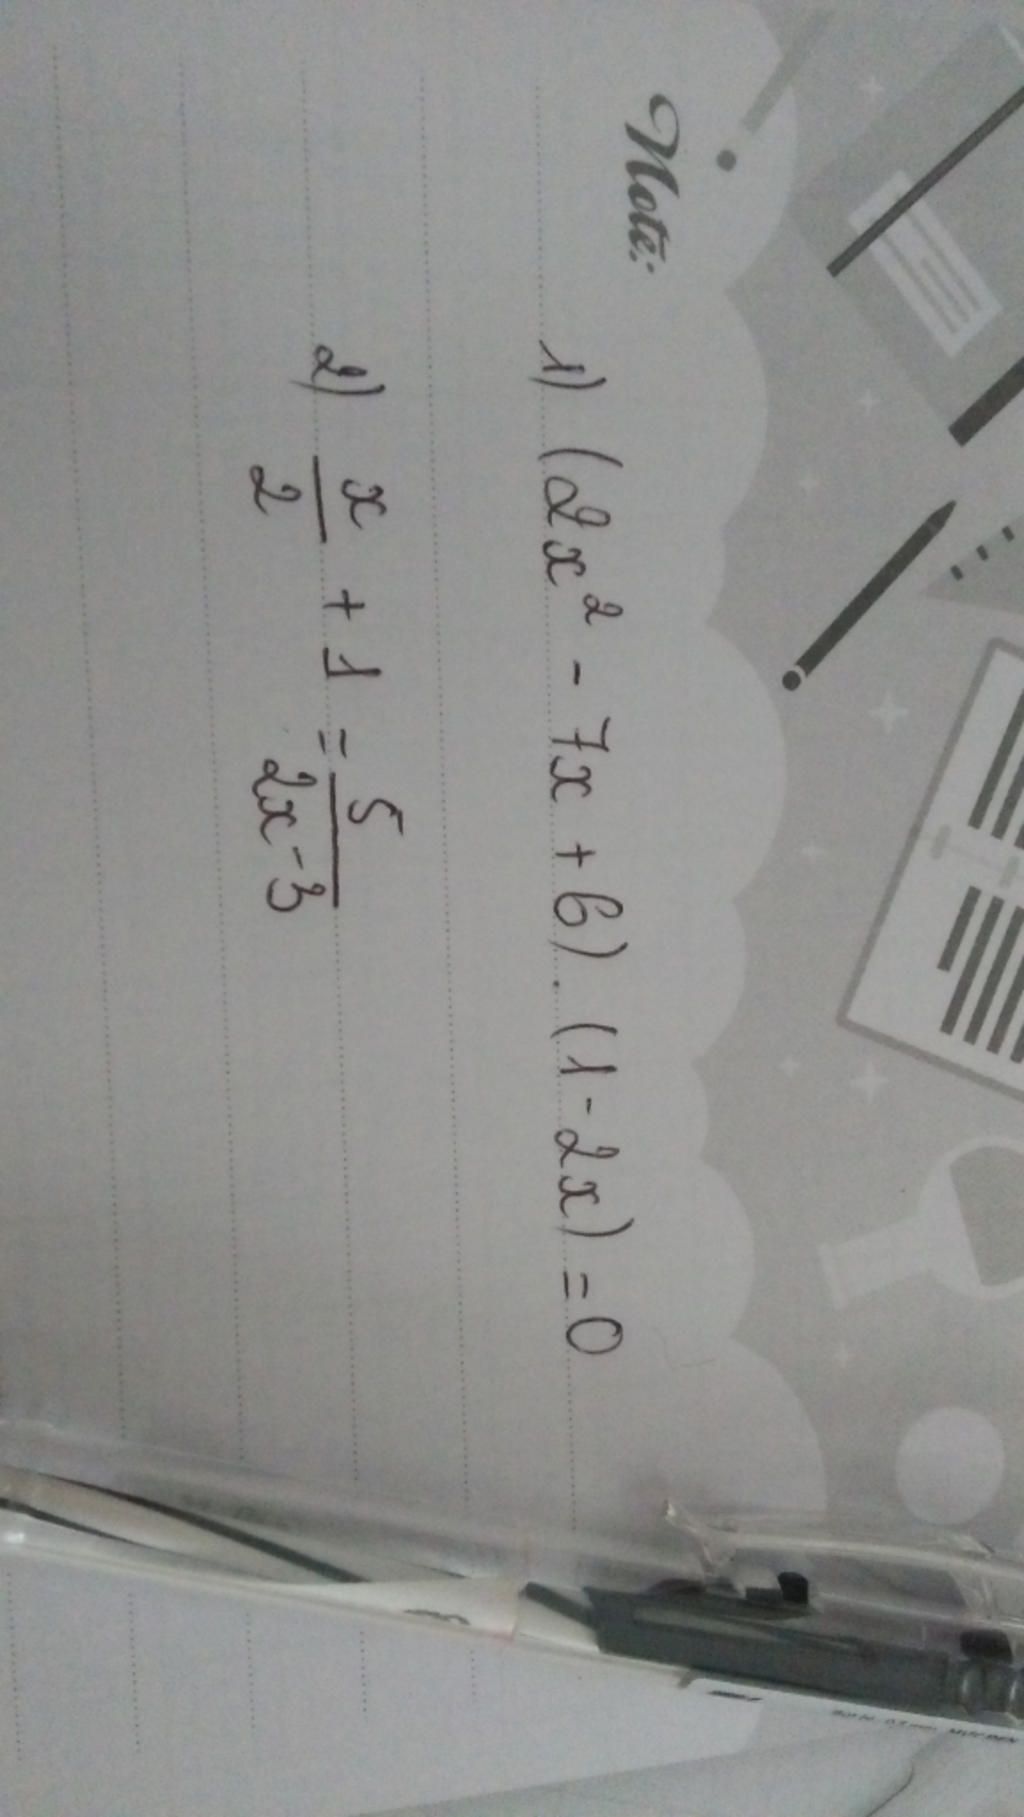 Note:
1) (2x² - 7x + 6) . (1 - 2x) = 0
2) x/2 + 1 = 5/(2x - 3)